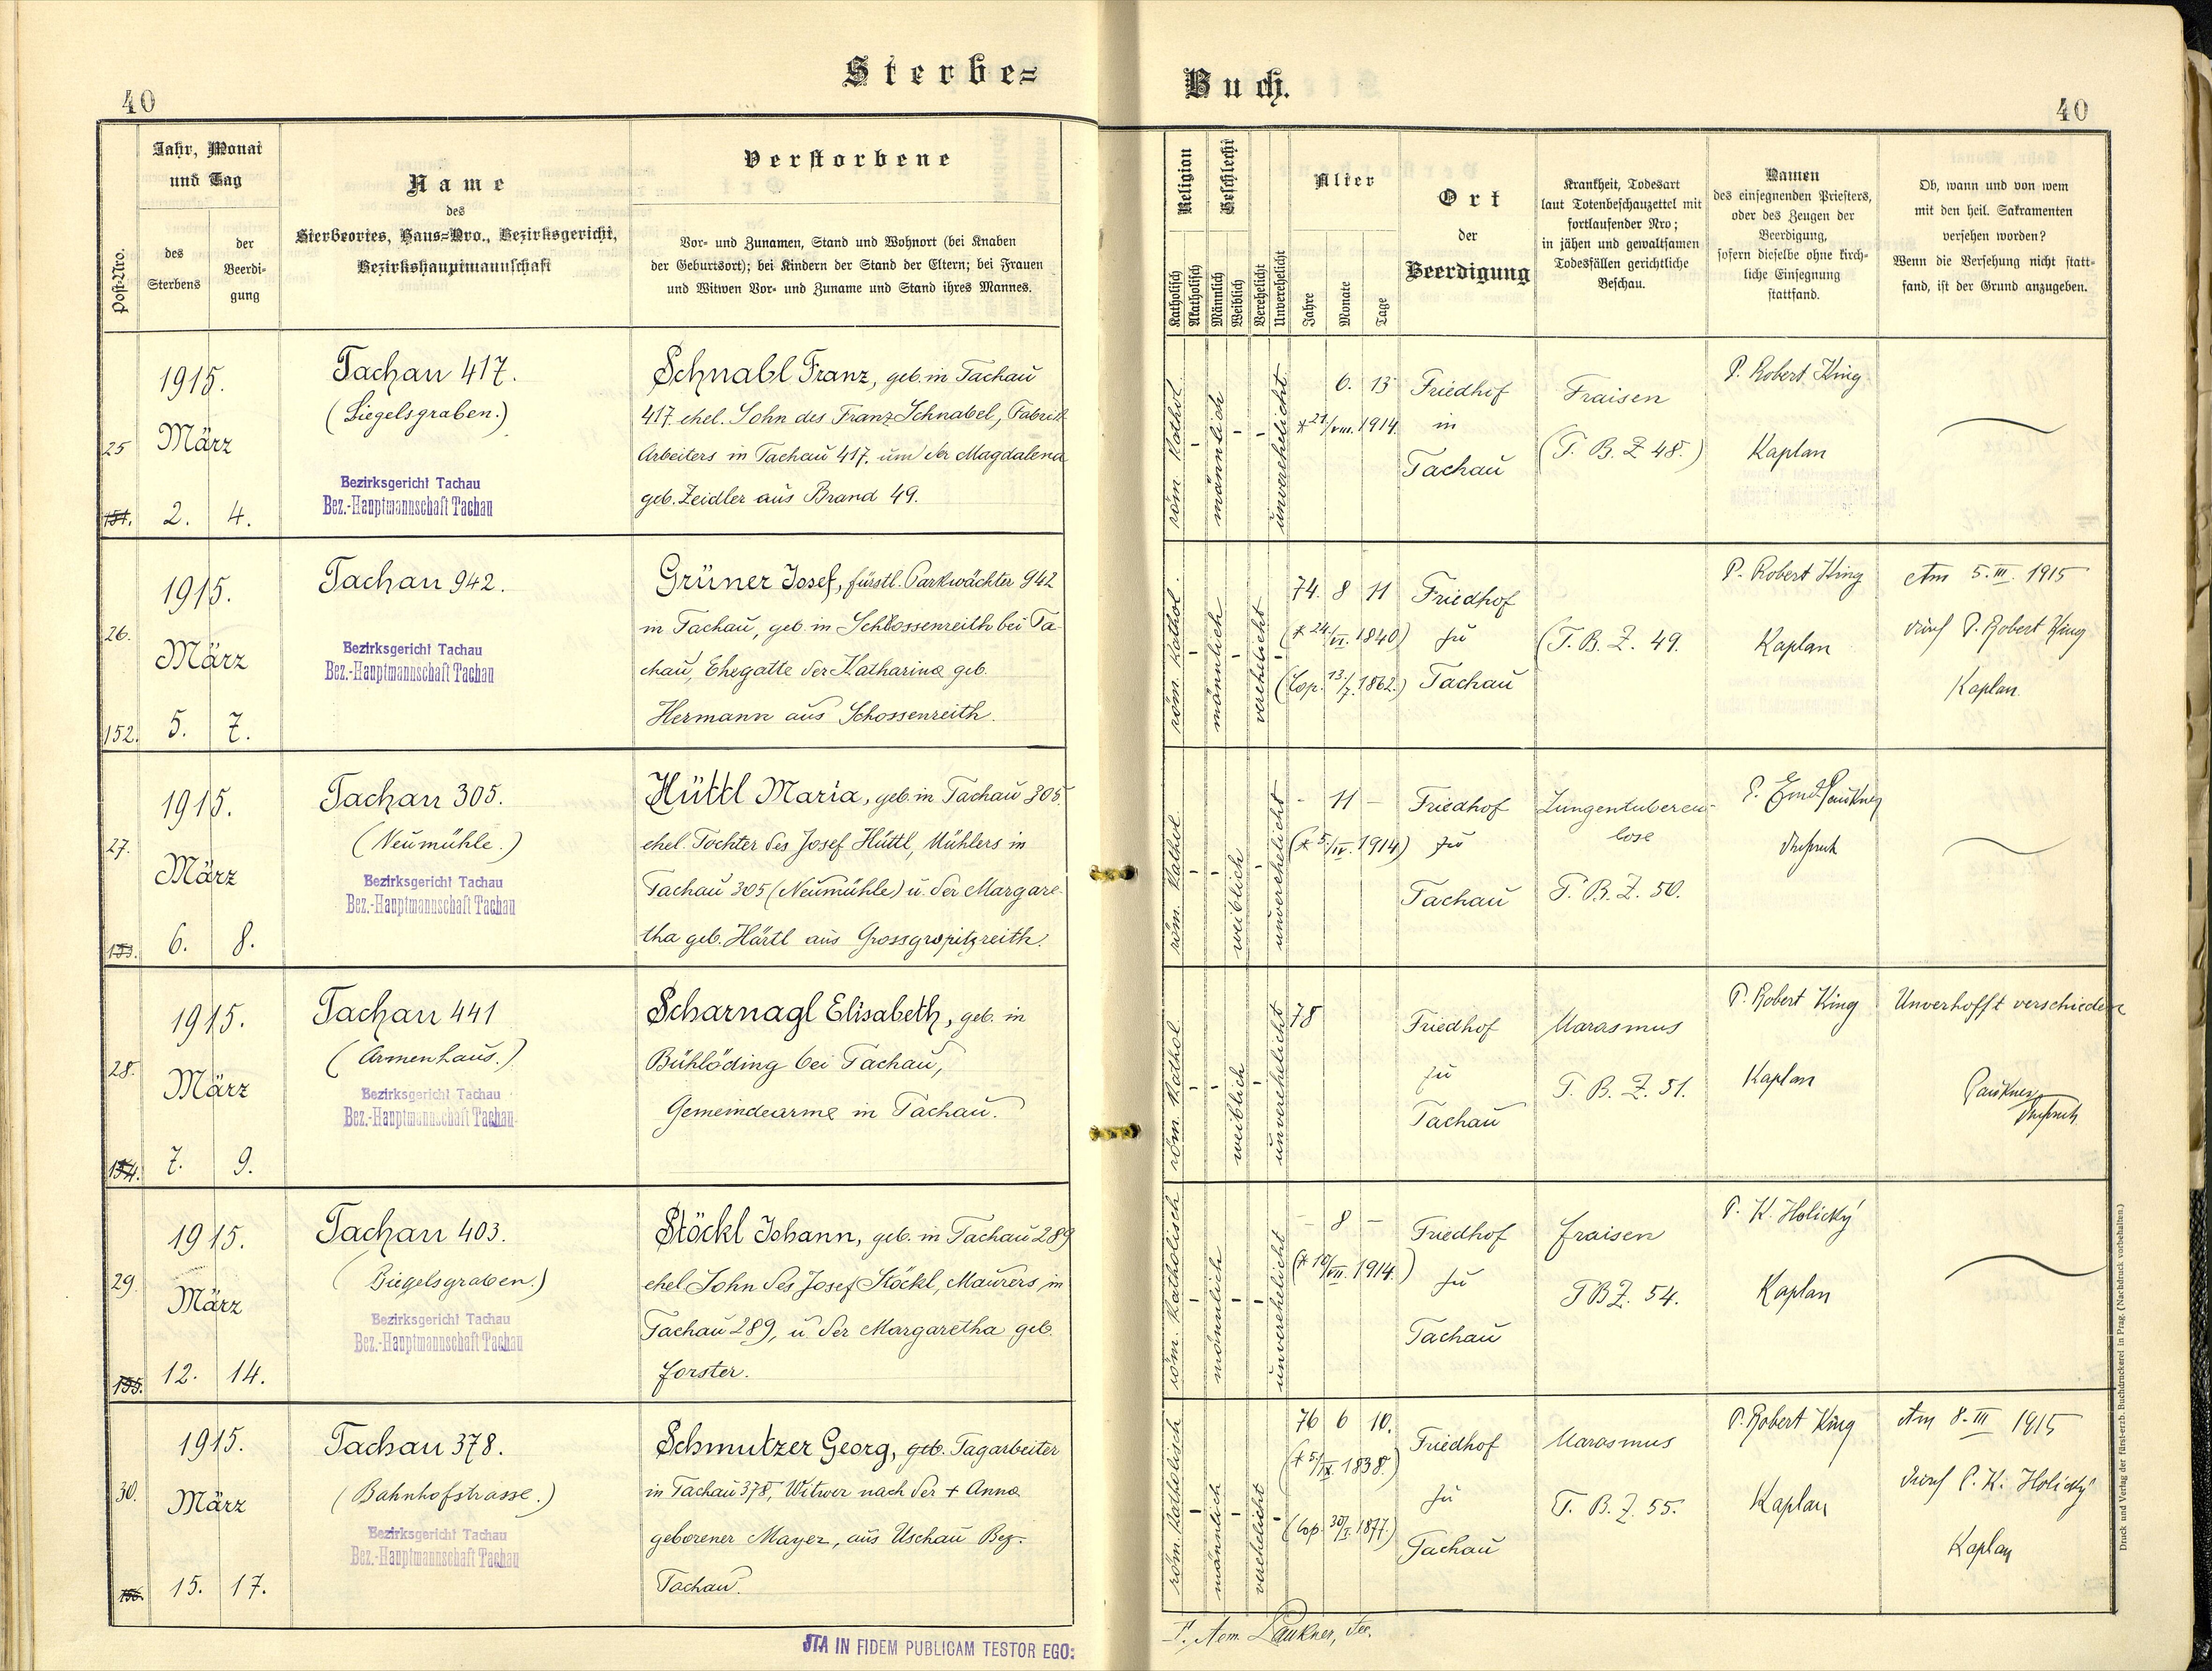 Sterbe=
Buch.
40
40
Post-Nro.
Jahr, Monat
und Tag
des
Sterbens
der
Beerdi-
gung
Name
des
Sterbeortes, Haus=Nro., Bezirksgericht,
Bezirkshauptmannschaft
Verstorbene
Vor- und Zunamen, Stand und Wohnort (bei Knaben
der Geburtsort); bei Kindern der Stand der Eltern; bei Frauen
und Witwen Vor- und Zuname und Stand ihres Mannes.
Religion
Katholisch
Akatholisch
Geschlecht
Männlich
Weiblich
Verehelicht
Unverehelicht
Alter
Jahre
Monate
Tage
Ort
der
Beerdigung
Krankheit, Todesart
laut Totenbeschauzettel mit
fortlaufender Nro;
in jähen und gewaltsamen
Todesfällen gerichtliche
Beschau.
Namen
des einsegnenden Priesters,
oder des Zeugen der
Beerdigung,
sofern dieselbe ohne kirch-
liche Einsegnung
stattfand.
Ob, wann und von wem
mit den heil. Sakramenten
versehen worden?
Wenn die Versehung nicht statt-
fand, ist der Grund anzugeben.
25
151.
1915.
März
2. 4.
Tachau 417.
(Ziegelsgraben.)
Bezirksgericht Tachau
Bez.-Hauptmannschaft Tachau
Schnabl Franz, geb. in Tachau
417. ehel. Sohn des Franz Schnabel, Fabriks
Arbeiters in Tachau 417. und der Magdalena
geb. Zeidler aus Brand 49.
röm. kathol.
-
männlich
-
-
unverehelicht
6. 13
*21/VIII. 1914
Friedhof
in
Tachau
Fraisen
(T. B. Z 48.)
P. Robert King
Kaplan
26.
152.
1915.
März
5. 7.
Tachau 942.
Bezirksgericht Tachau
Bez.-Hauptmannschaft Tachau
Grüner Josef, fürstl. Parkwächter 942
in Tachau, geb. in Schlossenreith bei Ta-
chau, Ehegatte der Katharina geb.
Hermann aus Schossenreith.
röm. kathol.
-
männlich
-
verehelicht
-
74. 8 11
(* 24/VI. 1840)
(Cop. 13./7. 1862.)
Friedhof
zu
Tachau
(T. B. Z. 49.
P. Robert King
Kaplan
Am 5. III. 1915
durch P. Robert King
Kaplan.
27.
153.
1915.
März
6. 8.
Tachau 305.
(Neumühle.)
Bezirksgericht Tachau
Bez.-Hauptmannschaft Tachau
Hüttl Maria, geb. in Tachau 305.
ehel. Tochter des Josef Hüttl, Mühlers in
Tachau 305 (Neumühle) u. der Margare-
tha geb. Härtl aus Grossgropitzreith.
röm. kathol.
-
-
weiblich
-
unverehelicht
- 11 -
(* 5./IV. 1914)
Friedhof
zu
Tachau
Lungentubercu-
lose
T. B. Z. 50.
28.
154.
1915.
März
7. 9.
Tachau 441
(Armenhaus.)
Bezirksgericht Tachau
Bez.-Hauptmannschaft Tachau
Scharnagl Elisabeth, geb. in
Bühlöding bei Tachau,
Gemeindearme in Tachau.
röm. kathol.
-
-
weiblich
-
unverehelicht
78
Friedhof
zu
Tachau
Marasmus
T. B. Z. 51.
P. Robert King
Kaplan
Unverhofft verschieden
Paukner
29.
155.
1915.
März
12. 14.
Tachau 403.
(Ziegelsgraben.)
Bezirksgericht Tachau
Bez.-Hauptmannschaft Tachau
Stöckl Johann, geb. in Tachau 289
ehel Sohn des Josef Stöckl, Maurers in
Tachau 289, u der Margaretha geb.
Forster.
röm. katholisch
-
männlich
-
-
unverehelicht
- 8 -
(* 10/VII. 1914.)
Friedhof
zu
Tachau
Fraisen
T B Z. 54.
P. K. Holický
Kaplan
30.
156.
1915.
März
15. 17.
Tachau 378.
(Bahnhofstrasse.)
Bezirksgericht Tachau
Bez.-Hauptmannschaft Tachau
Schmutzer Georg, geb. Tagarbeiter
in Tachau 378, Witwer nach der + Anna
geborener Mayer, aus Uschau Bez.
Tachau.
röm. katholisch
-
männlich
-
verehelicht
-
76 6 10.
(* 5/IX. 1838.)
(Cop. 30/I. 1877.)
Friedhof
zu
Tachau
Marasmus
T. B. Z. 55.
P. Robert King
Kaplan
Am 8. III 1915
durch P. K. Holický
Kaplan
ITA IN FIDEM PUBLICAM TESTOR EGO:
Paukner, Dec.
Druck und Verlag der fürst-erzb. Buchdruckerei in Prag. (Nachdruck vorbehalten.)